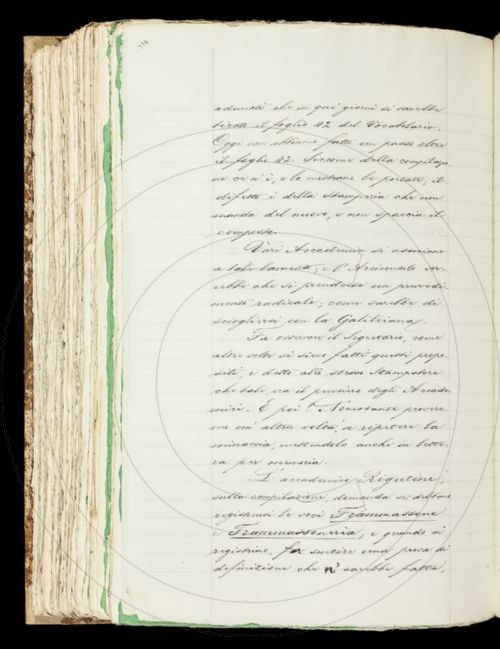 adunati che in quei giorni si sarebbe
tirato il foglio 42 del Vocabolario.
Oggi non abbiamo fatto un passo oltre
il foglio 42. Siccome della compilazio
ne ce n'è, e lo mostrano le portate, il
difetto è della Stamperia che non
manda del nuovo, e non spaccia il
composto.
Vari Accademici si associano
a tali lamenti; e l'Arciconsolo vor
rebbe che si prendesse un provvedi-
mento radicale, come sarebbe di
sciogliersi con la Galileiana.
Fa osservare il Segretario, come
altre volte si siano fatti questi propo-
siti, e detto allo stesso Stampatore
che tale era il pensiero degli Accade
mici. E poi
una altra volta, a ripetere la
minaccia, mettendola anche in lette-
ra per memoria.
L'accademico Rigutini,
sulla compilazione, domanda se debbano
registrarsi le voci Frammassone
e Frammassoneria, e quando si
registrino, fa sentire una prova di
definizione che n' sarebbe fatta,